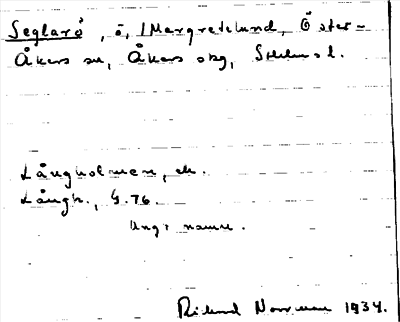 Seglarö, ö, /Margretelund, Öster-
Åkers sn, Åkers skg, Sthlms l.
Långholmen, ek.
Långh., G.76.
Ungt namn.
Rikard Norrman 1934.